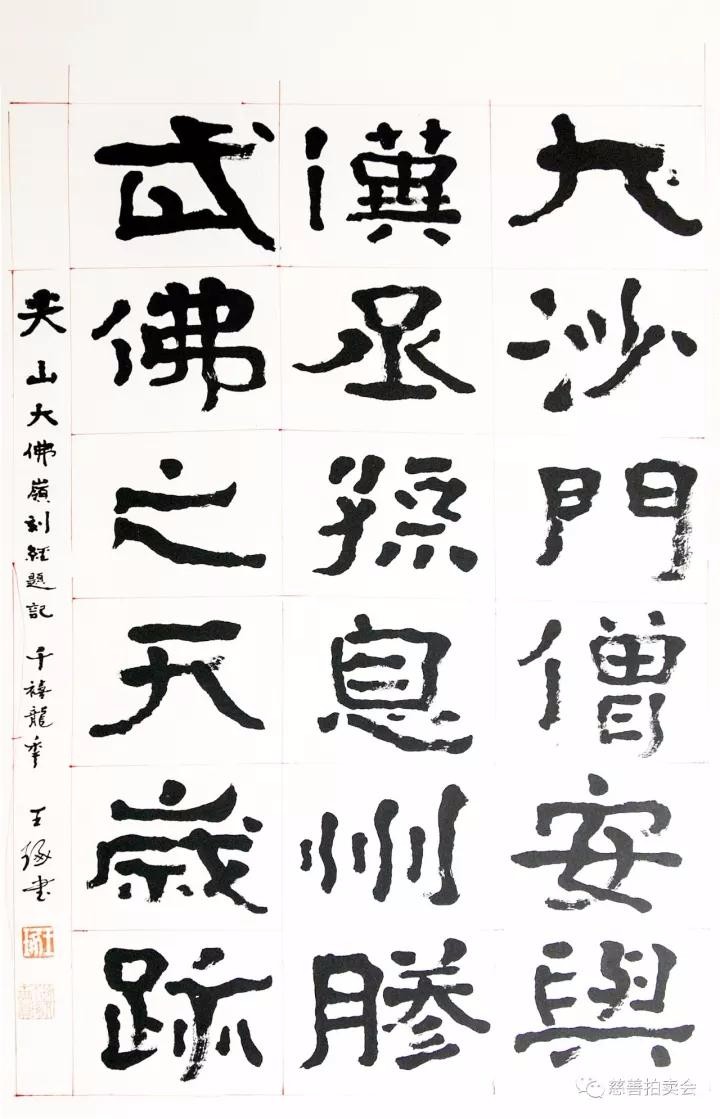 大沙門僧安與
漢丞孫息州膠
武佛之天歲跡
尖山大佛嶺刻經題記 千禧龍年 王書
慈善拍卖会